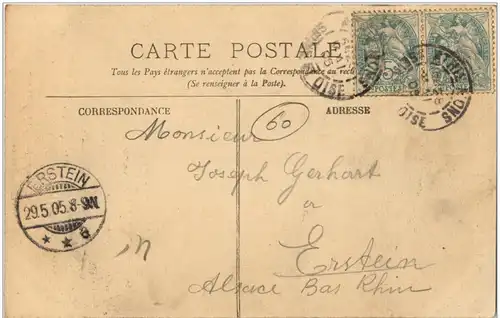 CARTE POSTALE
Tous les Pays étrangers n'acceptent pas la Correspondance au recto
(Se renseigner à la Poste).
CORRESPONDANCE
ADRESSE
60
Monsieur
Joseph Gerhart
a
Erstein
Alsace Bas Rhin
ERSTEIN
29.5.05.8-9N.
* * a
OISE
OISE
POSTES